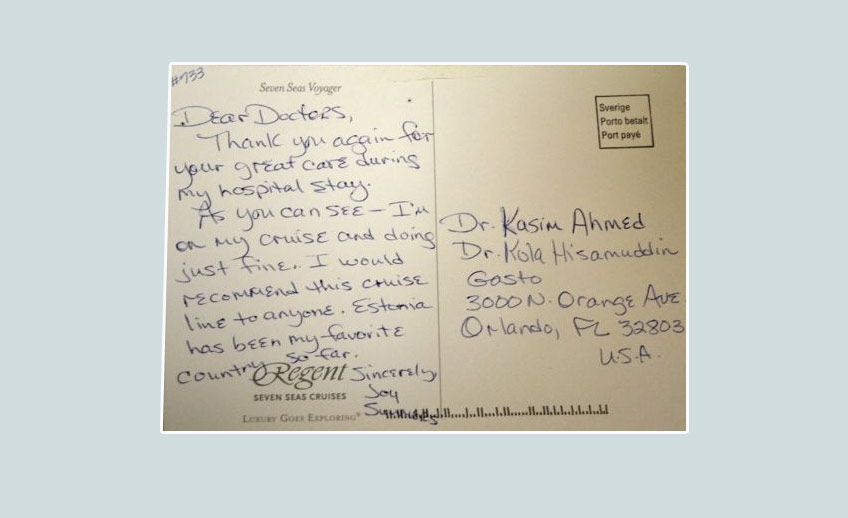 #733
Seven Seas Voyager
Dear Doctors,
Thank you again for
your great care during
my hospital stay.
As you can see - I'm
on my cruise and doing
just fine. I would
recommend this cruise
line to anyone. Estonia
has been my favorite
country so far.
Sincerely,
Joy
Regent
SEVEN SEAS CRUISES
LUXURY GOES EXPLORING®
Sverige
Porto betalt
Port payé
Dr. Kasim Ahmed
Dr. Kola Hisamuddin
Gasto
3000 N. Orange Ave
Orlando, FL 32803
U.S.A.